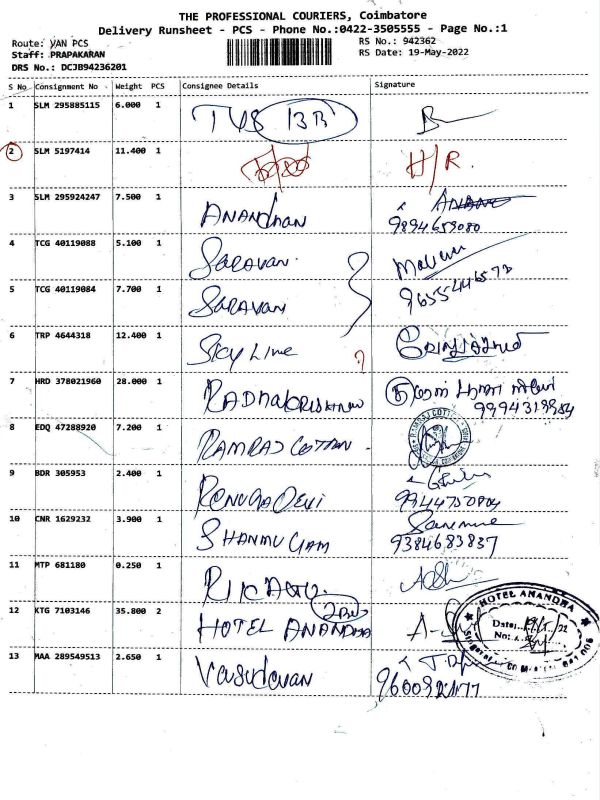 THE PROFESSIONAL COURIERS, Coimbatore
Delivery Runsheet - PCS - Phone No.:0422-3505555 - Page No.:1
Route: VAN PCS
RS No.: 942362
Staff: PRAPAKARAN
RS Date: 19-May-2022
DRS No.: DCJB94236201
S No Consignment No Weight PCS Consignee Details Signature
1 SLM 295885115 6.000 1 TVS BB
2 SLM 5197414 11.400 1 H/R.
3 SLM 295924247 7.500 1 ANANDhan
9894659080
4 TCG 40119088 5.100 1 SARAVAN.
5 TCG 40119084 7.700 1 SARAVAN
6 TRP 4644318 12.400 1 Sky Line ?
7 HRD 378021960 28.000 1 RADhaKRISHNAN
8 EDQ 47288920 7.200 1 RAMRAJ COTTON
RAMRAJ COTTON
9 BDR 305953 2.400 1 RENUGA DEVI
9944750804
10 CNR 1629232 3.900 1 SHANMUGAM
9384683837
11 MTP 681180 0.250 1
12 KTG 7103146 35.800 2 HOTEL ANANDHA
HOTEL ANANDHA
Date: 19/5/22
No:
13 MAA 289549513 2.650 1 Vasudevan